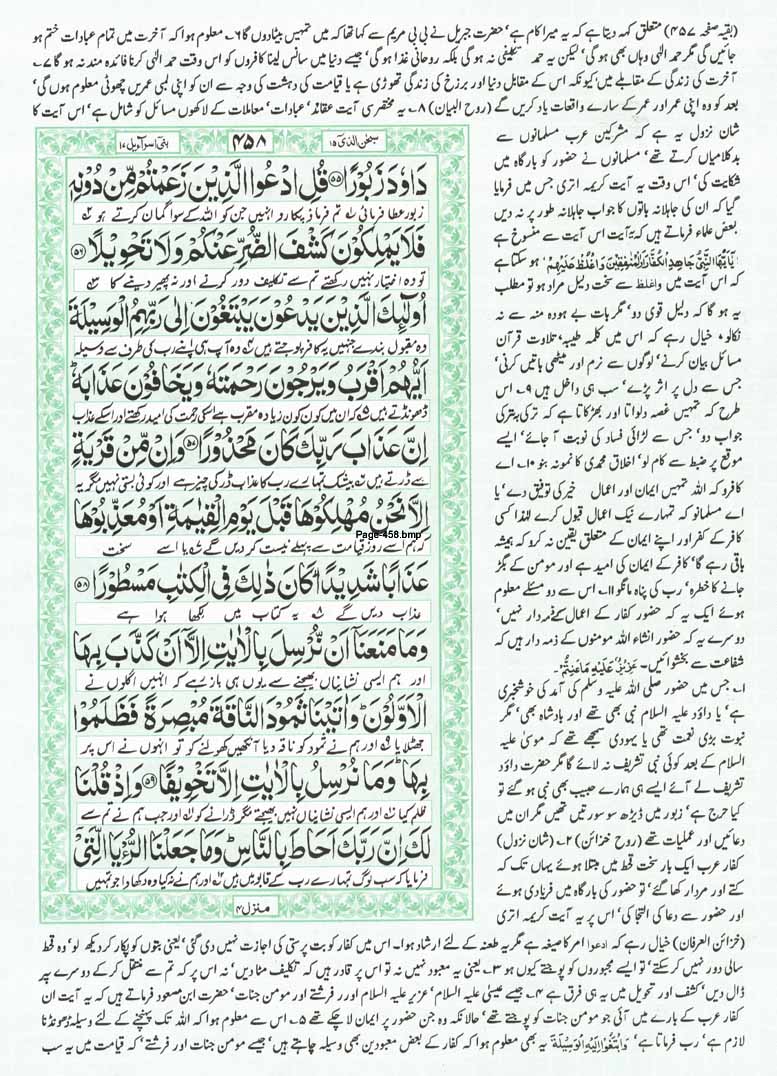 (بقیہ صفحہ ۴۵۷) متعلق کہہ دیتا ہے کہ یہ میرا کام ہے، حضرت جبریل نے بی بی مریم سے کہا تھا کہ میں تمہیں بیٹا دوں گا ۶۔ معلوم ہوا کہ آخرت میں تمام عبادات ختم ہو
جائیں گی مگر حمد الٰہی وہاں بھی ہو گی، لیکن یہ حمد تکلیفی نہ ہو گی بلکہ روحانی غذا ہو گی، جیسے دنیا میں سانس لینا کافروں کو اس وقت حمد الٰہی کرنا فائدہ مند نہ ہو گا ۷۔
آخرت کی زندگی کے مقابلے میں، کیونکہ اس کے مقابل دنیا اور برزخ کی زندگی تھوڑی ہے یا قیامت کی دہشت کی وجہ سے ان کو اپنی لمبی عمریں چھوٹی معلوم ہوں گی،
بعد کو وہ اپنی عمر اور عمر کے سارے واقعات یاد کریں گے (روح البیان) ۸۔ یہ مختصر سی آیت عقائد، عبادات، معاملات کے لاکھوں مسائل کو شامل ہے، اس آیت کا
شان نزول یہ ہے کہ مشرکین عرب مسلمانوں سے
بدکلامیاں کرتے تھے، مسلمانوں نے حضور کو بارگاہ میں
شکایت کی، اس وقت یہ آیت کریمہ اتری جس میں فرمایا
گیا کہ ان کی جاہلانہ باتوں کا جواب جاہلانہ طور پر نہ دیں
بعض علماء فرماتے ہیں کہ یہ آیت اس آیت سے منسوخ ہے
یٰۤاَیُّهَا النَّبِیُّ جَاهِدِ الْكُفَّارَ وَالْمُنٰفِقِیْنَ وَاغْلُظْ عَلَیْهِمْ ہو سکتا ہے
کہ اس آیت میں واغلظ سے سخت دلیل مراد ہو تو مطلب
یہ ہو گا کہ دلیل قوی دو، مگر بات بے ہودہ منہ سے نہ
نکالو، خیال رہے کہ اس میں کلمہ طیبہ، تلاوت قرآن
مسائل بیان کرنے، لوگوں سے نرم اور میٹھی باتیں کرنی،
جس سے دل پر اثر پڑے، سب ہی داخل ہیں ۹۔ اس
طرح کہ تمہیں غصہ دلواتا اور بھڑکاتا ہے کہ ترکی بترکی
جواب دو، جس سے لڑائی فساد کی نوبت آ جائے، ایسے
موقع پر ضبط سے کام لو، اخلاق محمدی کا نمونہ بنو ۱۰۔ اے
کافرو کہ اللہ تمہیں ایمان اور اعمال خیر کی توفیق دے، یا
اے مسلمانو کہ تمہارے نیک اعمال قبول کرے لہٰذا کسی
کافر کے کفر اور اپنے ایمان کے متعلق یقین نہ کرو کہ ہمیشہ
باقی رہے گا، کافر کے ایمان کی امید ہے اور مومن کے بگڑ
جانے کا خطرہ، رب کی پناہ مانگو ۱۱۔ اس سے دو مسئلے معلوم
ہوئے ایک یہ کہ حضور کفار کے اعمال کے ذمہ دار نہیں،
دوسرے یہ کہ حضور انشاء اللہ مومنوں کے ذمہ دار ہیں کہ
شفاعت سے بخشوائیں۔ عَزِیْزٌ عَلَیْهِ مَاعَنِتُّمْ۔
۱۔ جس میں حضور صلی اللہ علیہ وسلم کی آمد کی خوشخبری
ہے، یا داؤد علیہ السلام نبی بھی تھے اور بادشاہ بھی، مگر
نبوت بڑی نعمت تھی یا یہودی سمجھے تھے کہ موسیٰ علیہ
السلام کے بعد کوئی نبی تشریف نہ لائے گا مگر حضرت داؤد
تشریف لے آئے ایسے ہی ہمارے حبیب بھی نبی ہو گئے تو
کیا حرج ہے، زبور میں ڈیڑھ سو سورتیں تھیں مگر ان میں
دعائیں اور عملیات تھے (روح خزائن) ۲۔ (شان نزول)
کفار عرب ایک بار سخت قحط میں مبتلا ہوئے یہاں تک کہ
کتے اور مردار کھا گئے، تو حضور کی بارگاہ میں فریادی ہوئے
اور حضور سے دعا کی التجا کی، اس پر یہ آیت کریمہ اتری
سبحٰن الذی ۱۵ ۴۵۸ بنی اسرآءیل ۱۷
دَاوٗدَ زَبُوْرًا ﴿۵۵﴾ قُلِ ادْعُوا الَّذِیْنَ زَعَمْتُمْ مِّنْ دُوْنِهٖ
زبور عطا فرمائی ۱ تم فرماؤ پکارو انہیں جن کو اللہ کے سوا گمان کرتے ہو ۲
فَلَا یَمْلِكُوْنَ كَشْفَ الضُّرِّ عَنْكُمْ وَلَا تَحْوِیْلًا ﴿۵۶﴾
تو وہ اختیار نہیں رکھتے تم سے تکلیف دور کرنے اور نہ پھیر دینے کا ۳
اُولٰٓئِكَ الَّذِیْنَ یَدْعُوْنَ یَبْتَغُوْنَ اِلٰی رَبِّهِمُ الْوَسِیْلَةَ
وہ مقبول بندے جنہیں یہ کافر پوجتے ہیں ۴ وہ آپ ہی اپنے رب کی طرف سے وسیلہ
اَیُّهُمْ اَقْرَبُ وَیَرْجُوْنَ رَحْمَتَهٗ وَیَخَافُوْنَ عَذَابَهٗ
ڈھونڈتے ہیں ۵ کہ ان میں کون کون زیادہ مقرب ہے اسکی رحمت کی امید رکھتے اور اسکے عذاب
اِنَّ عَذَابَ رَبِّكَ كَانَ مَحْذُوْرًا ﴿۵۷﴾ وَاِنْ مِّنْ قَرْیَةٍ
سے ڈرتے ہیں بیشک تمہارے رب کا عذاب ڈر کی چیز ہے اور کوئی بستی نہیں مگر یہ
اِلَّا نَحْنُ مُهْلِكُوْهَا قَبْلَ یَوْمِ الْقِیٰمَةِ اَوْ مُعَذِّبُوْهَا
Page-458.bmp
کہ ہم اسے روز قیامت سے پہلے نیست کر دیں گے یا اسے سخت
عَذَابًا شَدِیْدًا كَانَ ذٰلِكَ فِی الْكِتٰبِ مَسْطُوْرًا ﴿۵۸﴾
عذاب دیں گے یہ کتاب میں لکھا ہوا ہے
وَمَا مَنَعَنَاۤ اَنْ نُّرْسِلَ بِالْاٰیٰتِ اِلَّاۤ اَنْ كَذَّبَ بِهَا
اور ہم ایسی نشانیاں بھیجنے سے یوں ہی باز رہے کہ انہیں اگلوں نے
الْاَوَّلُوْنَ وَاٰتَیْنَا ثَمُوْدَ النَّاقَةَ مُبْصِرَةً فَظَلَمُوْا
جھٹلایا اور ہم نے ثمود کو ناقہ دیا آنکھیں کھولنے کو تو انہوں نے اس پر
بِهَا وَمَا نُرْسِلُ بِالْاٰیٰتِ اِلَّا تَخْوِیْفًا ﴿۵۹﴾ وَاِذْ قُلْنَا
ظلم کیا اور ہم ایسی نشانیاں نہیں بھیجتے مگر ڈرانے کو اور جب ہم نے تم سے
لَكَ اِنَّ رَبَّكَ اَحَاطَ بِالنَّاسِ وَمَا جَعَلْنَا الرُّءْیَا الَّتِیْۤ
فرمایا کہ سب لوگ تمہارے رب کے قابو میں ہیں اور ہم نے نہ کیا وہ دکھاوا جو تمہیں
منزل ۴
(خزائن العرفان) خیال رہے کہ ادعوا امر کا صیغہ ہے مگر یہ طعنہ کے لئے ارشاد ہوا۔ اس میں کفار کو بت پرستی کی اجازت نہیں دی گئی، یعنی بتوں کو پکار کر دیکھ لو، وہ قحط
سالی دور نہیں کر سکتے، تو ایسے مجبوروں کو پوجتے کیوں ہو ۳۔ یعنی یہ معبود نہیں نہ تو اس پر قادر ہیں کہ تکلیف مٹا دیں، نہ اس پر کہ تم سے منتقل کر کے دوسرے پر
ڈال دیں، کشف اور تحویل میں یہ ہی فرق ہے ۴۔ جیسے عیسیٰ علیہ السلام، عزیر علیہ السلام اور فرشتے اور مومن جنات، حضرت ابن مسعود فرماتے ہیں کہ یہ آیت ان
کفار عرب کے بارے میں آئی جو مومن جنات کو پوجتے تھے، حالانکہ وہ جن حضور پر ایمان لا چکے تھے ۵۔ اس سے معلوم ہوا کہ اللہ تک پہنچنے کے لئے وسیلہ ڈھونڈنا
لازم ہے، رب فرماتا ہے، وَابْتَغُوْۤا اِلَیْهِ الْوَسِیْلَةَ یہ بھی معلوم ہوا کہ کفار کے بعض معبودین بھی وسیلہ چاہتے ہیں، جیسے مومن جنات اور فرشتے، کہ قیامت میں یہ سب